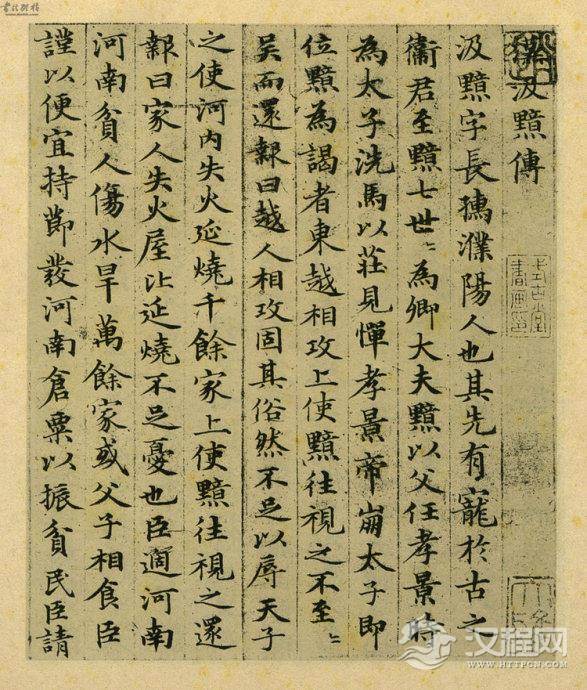 汲黯傳
汲黯字長孺濮陽人也其先有寵於古之
衛君至黯七世〻為卿大夫黯以父任孝景時
為太子洗馬以莊見憚孝景帝崩太子即
位黯為謁者東越相攻上使黯往視之不至〻
吳而還報曰越人相攻固其俗然不足以辱天子
之使河内失火延燒千餘家上使黯往視之還
報曰家人失火屋比延燒不足憂也臣過河南
河南貧人傷水旱萬餘家或父子相食臣
謹以便宜持節發河南倉粟以振貧民臣請
式古堂
書畫印
汉程网
HTTPCN.COM